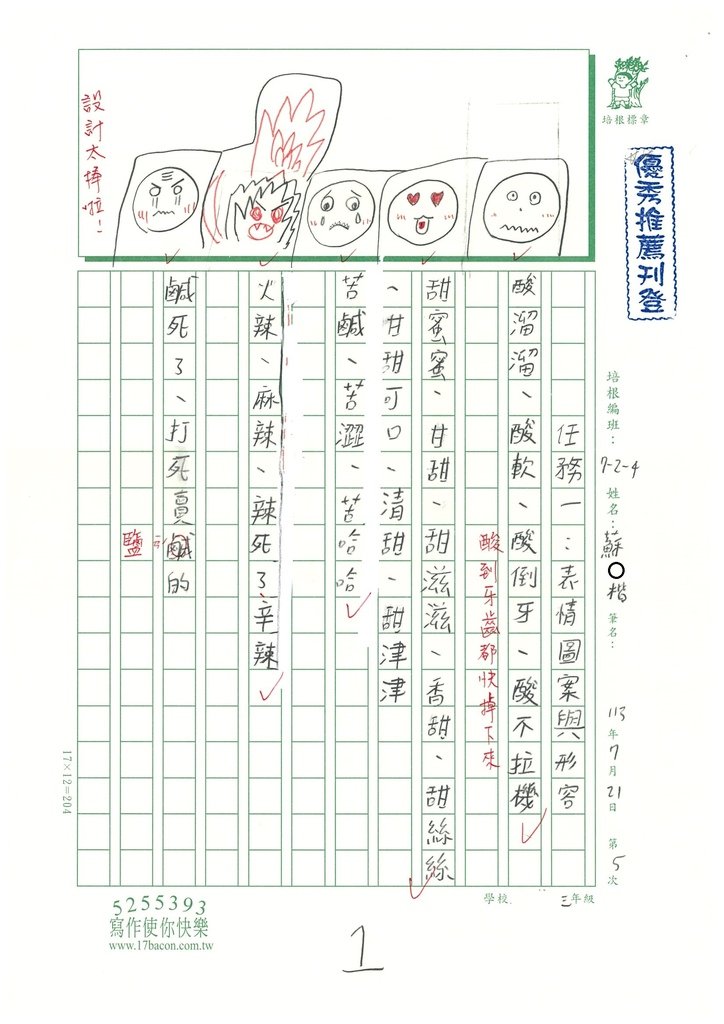 培根標章
優秀推薦刊登
培根編班：7-2-4 姓名：蘇○楷 筆名：
113年7月21日 第5次
學校 三年級
設計太棒啦！
任務一：表情圖案與形容
酸溜溜、酸軟、酸倒牙、酸不拉機
酸到牙齒都快掉下來
甜蜜蜜、甘甜、甜滋滋、香甜、甜絲絲
、甘甜可口、清甜、甜津津
苦鹹、苦澀、苦哈哈
火辣、麻辣、辣死了辛辣
鹹死了、打死賣鹹的
鹽
17×12=204
5255393
寫作使你快樂
www.17bacon.com.tw
1